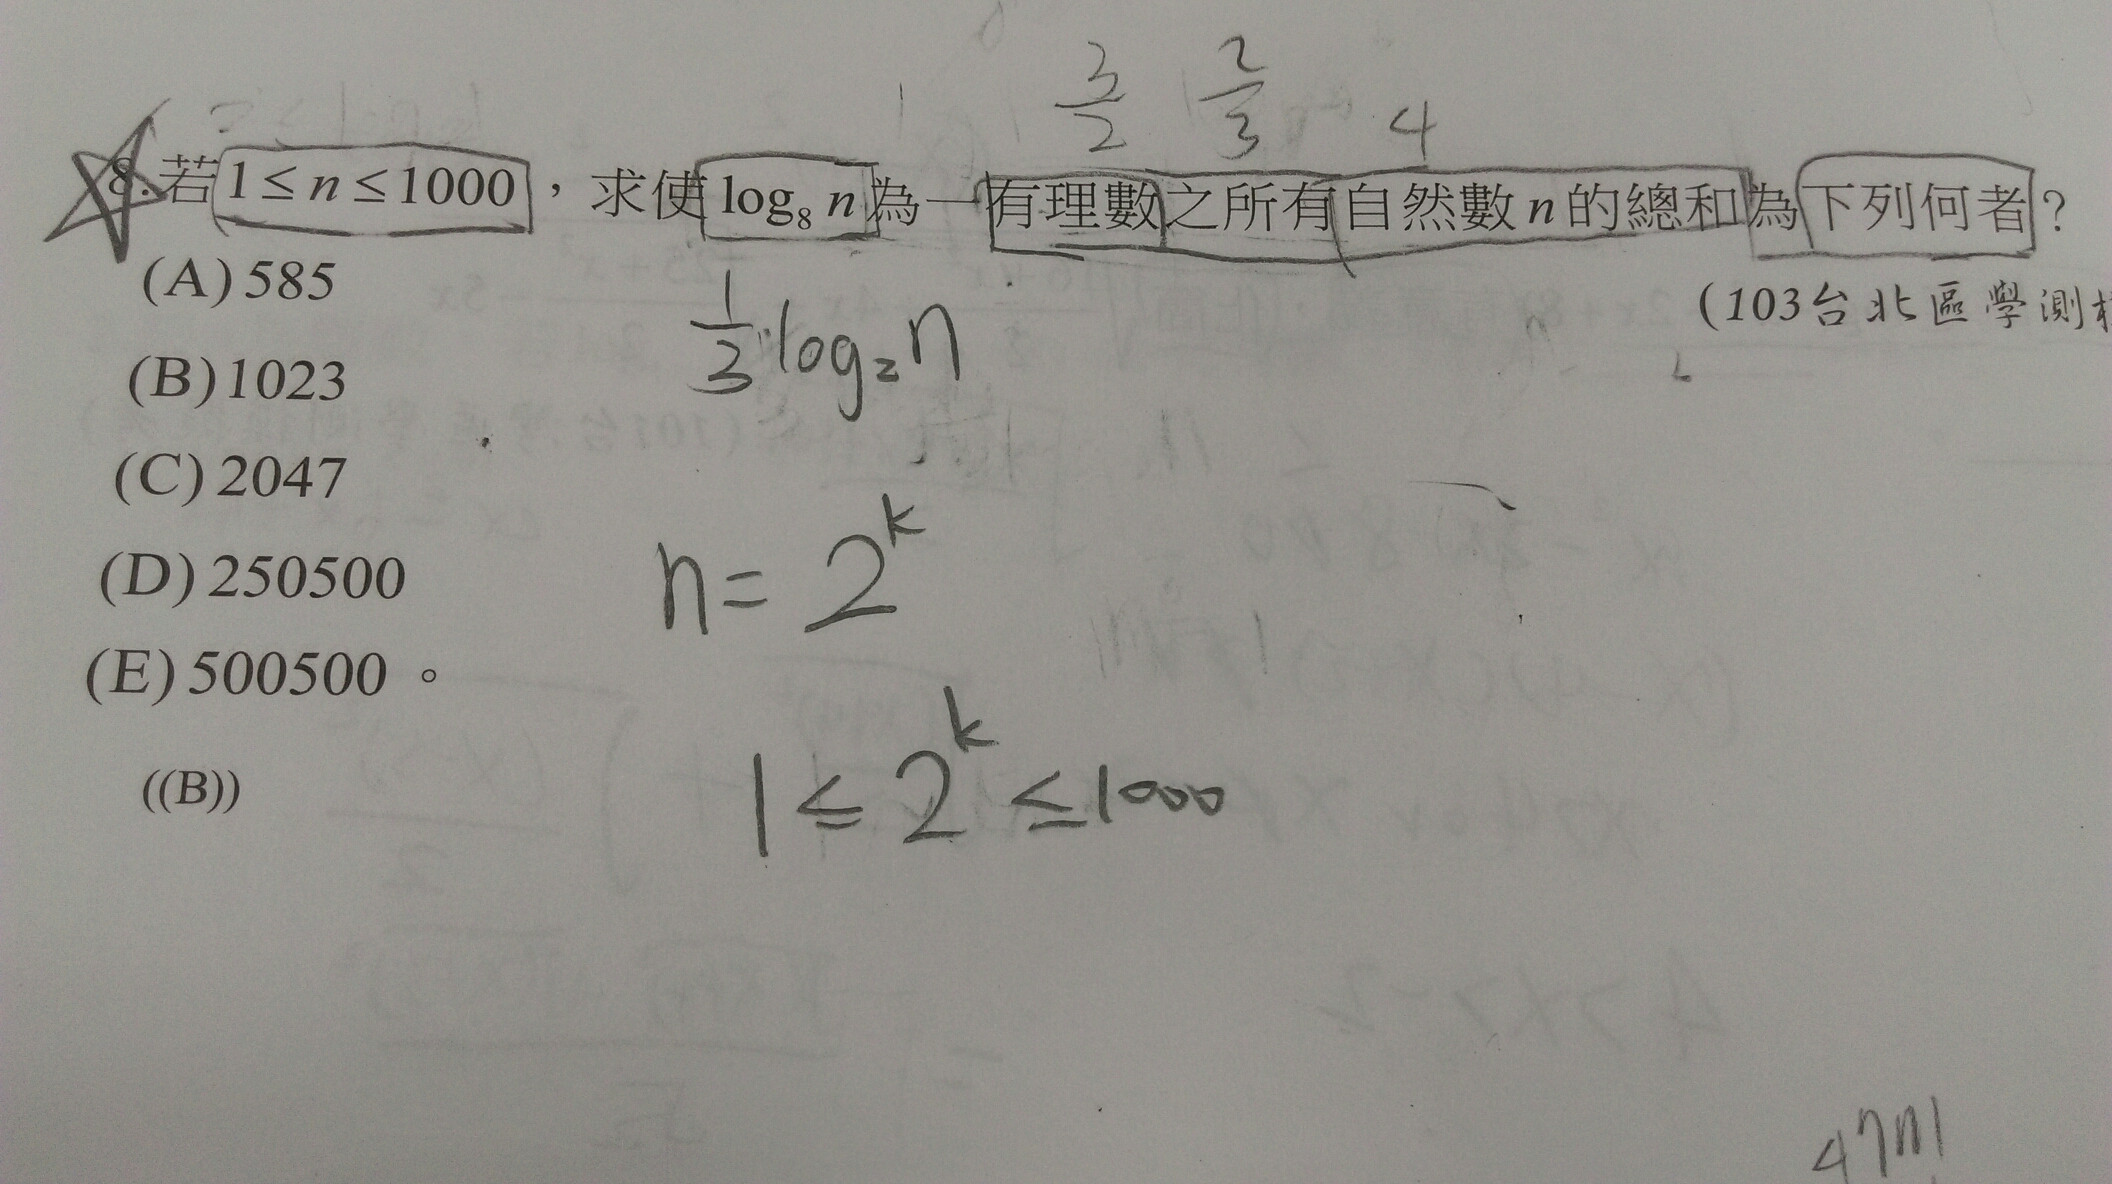 3/2 2/3 4
8.若1≤n≤1000，求使log₈ n為一有理數之所有自然數n的總和為下列何者？
(A)585
(103台北區學測
1/3 log₂n
(B)1023
(C)2047
n=2^k
(D)250500
(E)500500。
1≤2^k≤1000
((B))